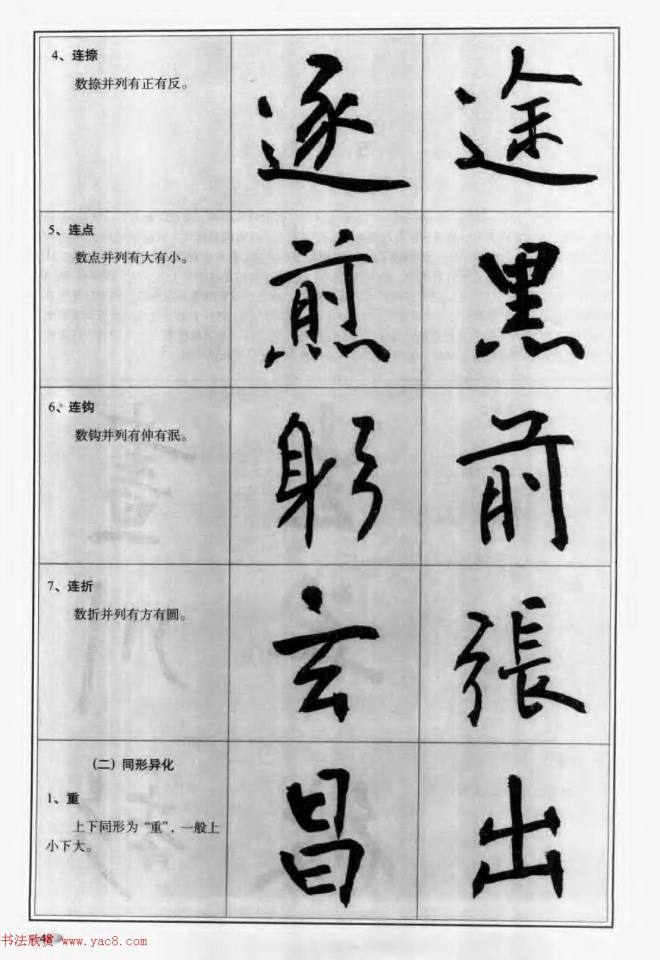 4、连捺
数捺并列有正有反。
逐 途
5、连点
数点并列有大有小。
煎 黑
6、连钩
数钩并列有伸有泯。
躬 前
7、连折
数折并列有方有圆。
玄 張
（二）同形异化
1、重
上下同形为“重”，一般上
小下大。
昌 出
48
书法欣赏 www.yac8.com